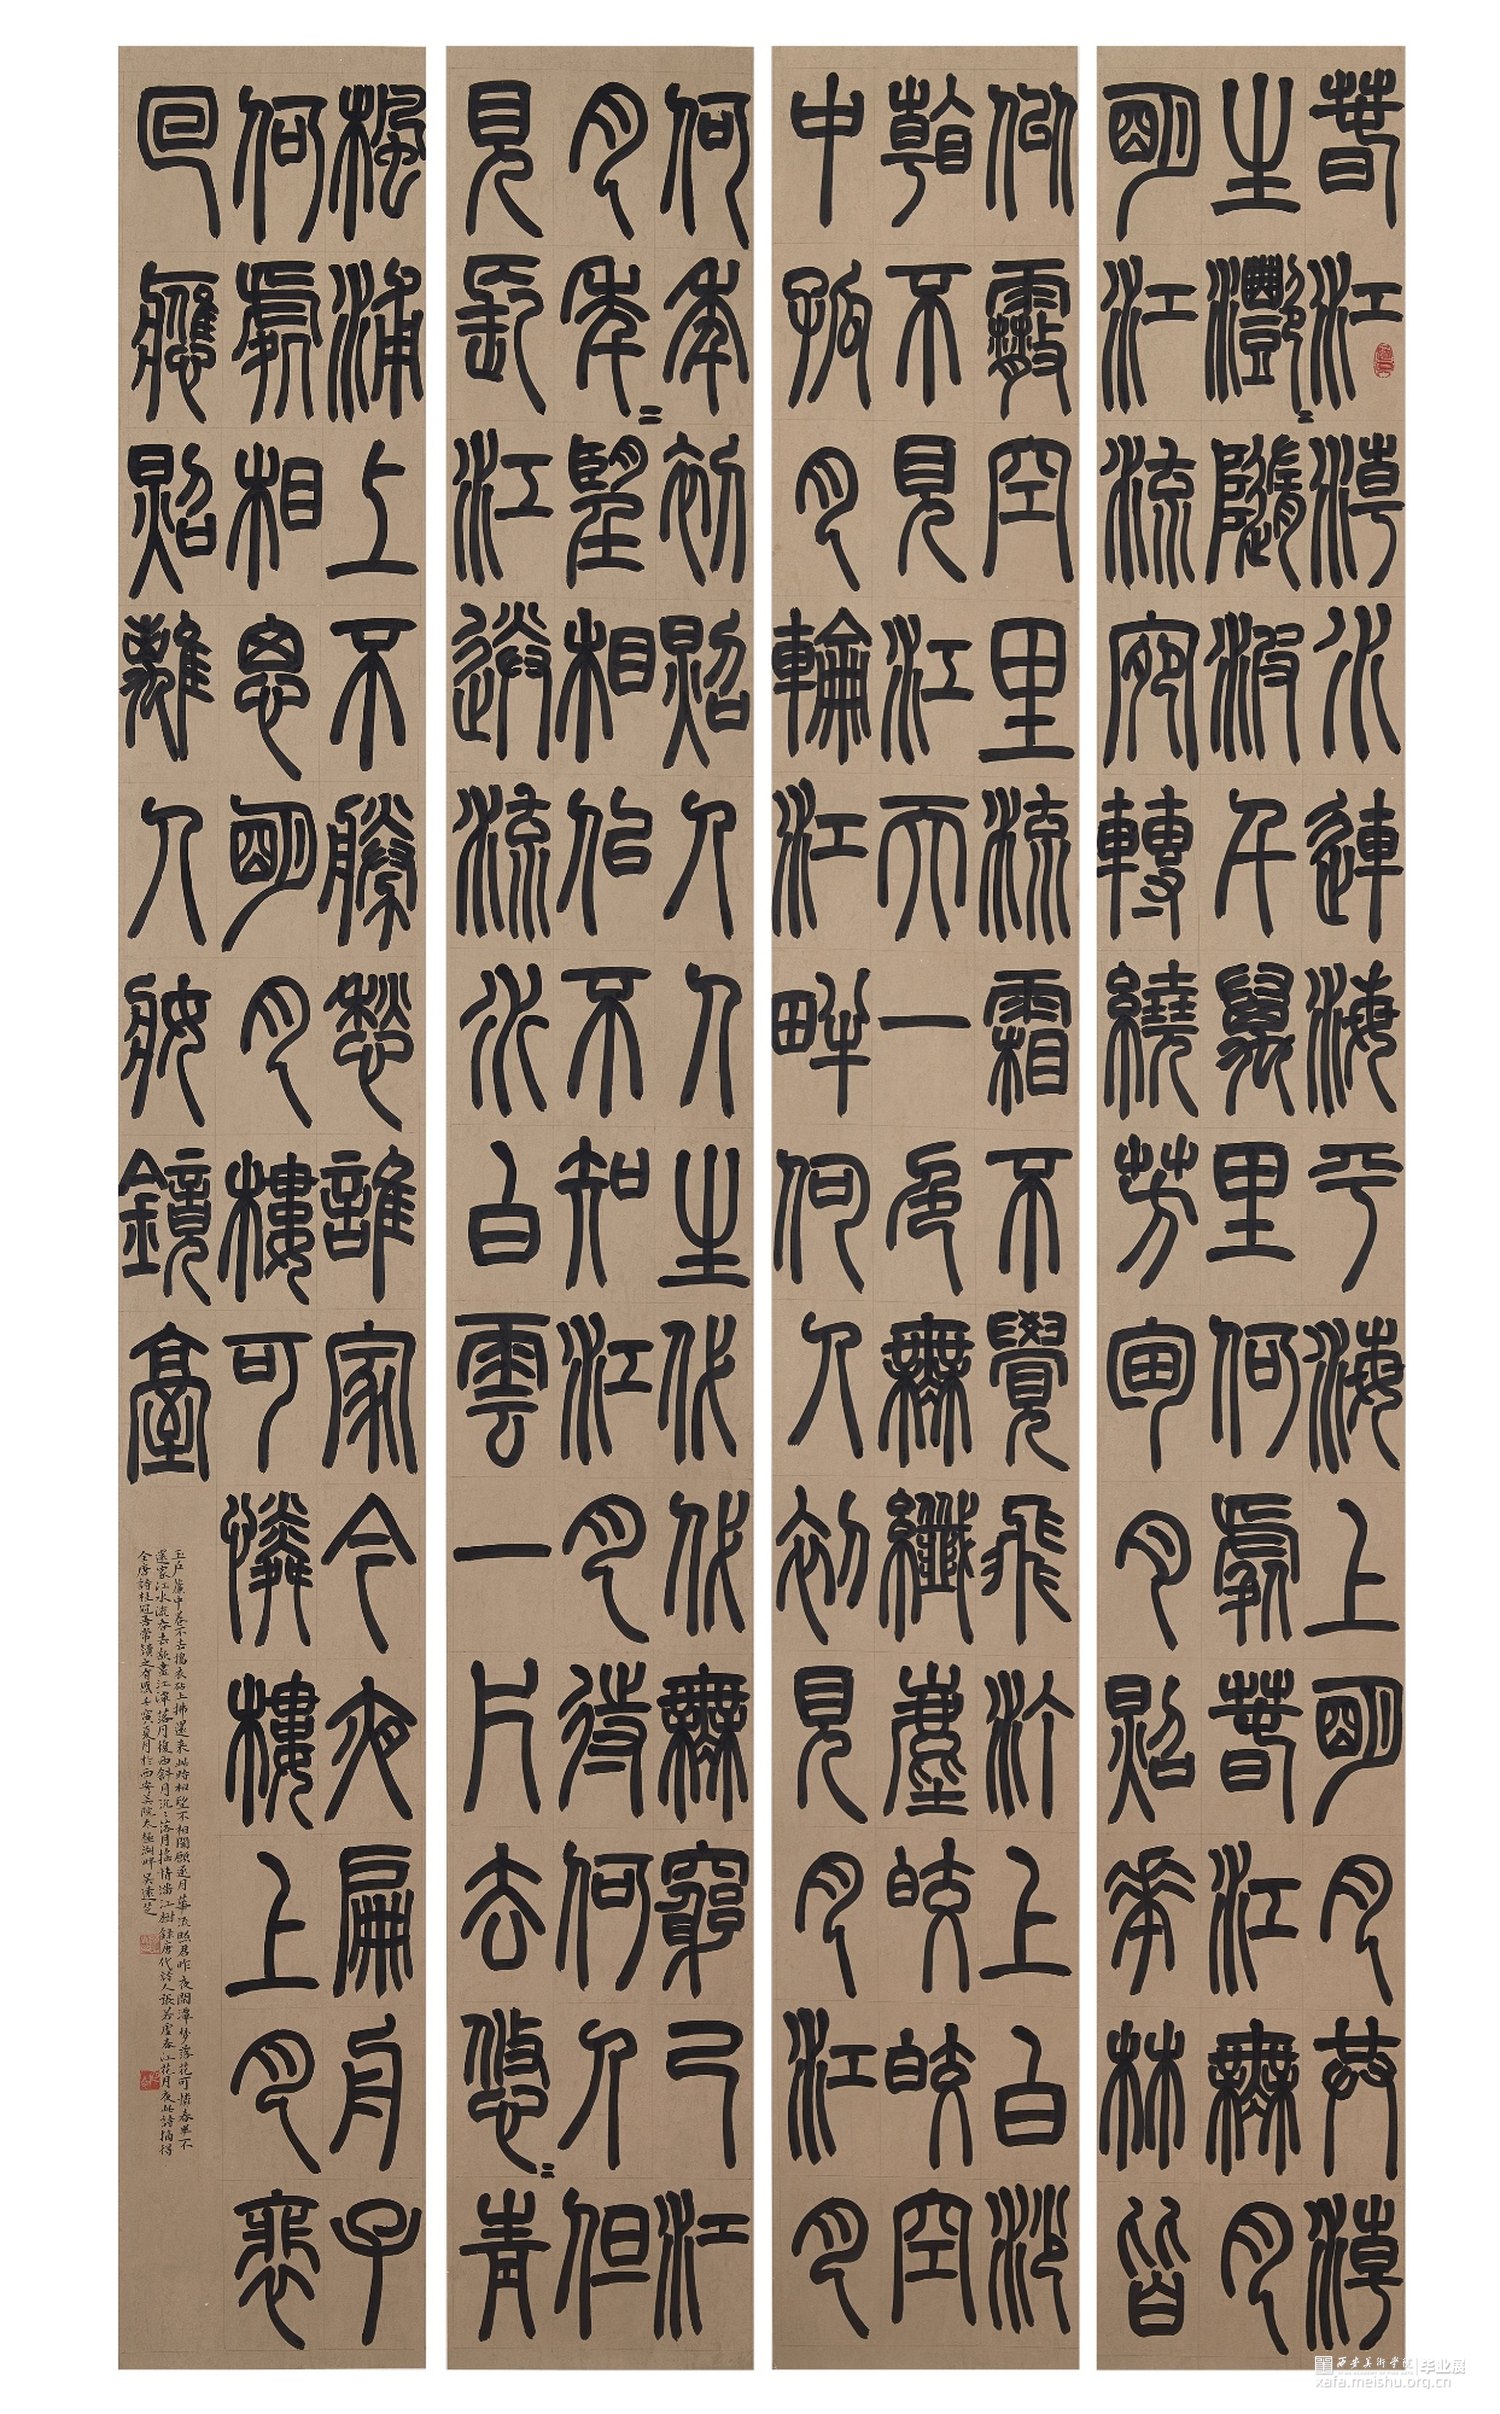 春江潮水連海平海上明月共潮
生灩〻隨波千萬里何處春江無月
明江流宛轉繞芳甸月照花林皆
似霰空里流霜不覺飛汀上白沙
看不見江天一色無纖塵皎皎空
中孤月輪江畔何人初見月江月
何年初照人人生代代無窮已江
月年〻望相似不知江月待何人但
見長江送流水白雲一片去悠〻青
楓浦上不勝愁誰家今夜扁舟子
何處相思明月樓可憐樓上月裴
回應照離人妝鏡臺
玉戶簾中卷不去搗衣砧上拂還來此時相望不相聞願逐月華流照君昨夜閑潭夢落花可憐春半不
還家江水流春去欲盡江潭落月復西斜月沉〻落月搖情滿江樹錄唐代詩人張若虛春江花月夜此詩摘得
全唐詩桂冠吾常讀之有感壬寅夏月於西安美院太極湖畔吳遠芝
西安美術學院 毕业展
xafa.meishu.org.cn